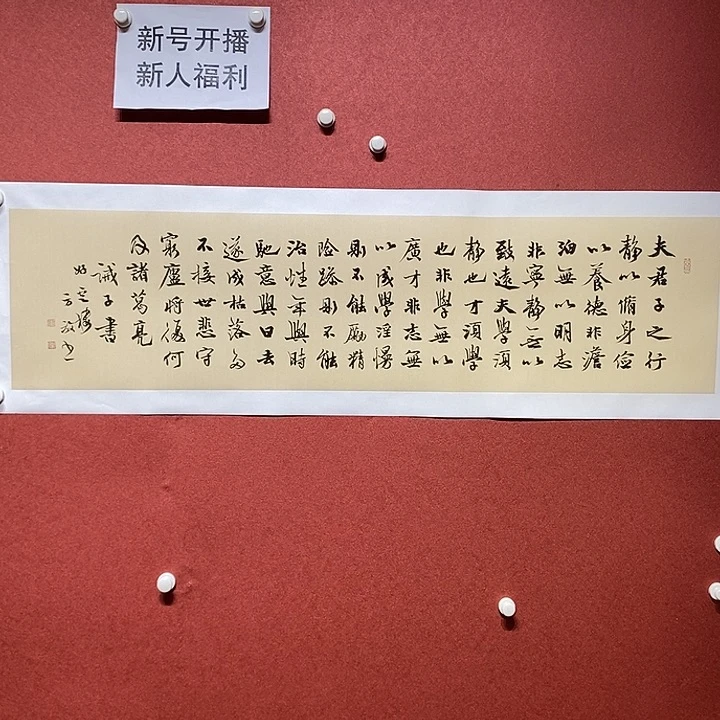 新号开播
新人福利
夫君子之行
静以脩身俭
以養德非澹
泊無以明志
非寧静無以
致遠夫學須
静也才須學
也非學無以
廣才非志無
以成學淫慢
則不能勵精
险躁則不能
治性年與時
馳意與日去
遂成枯落多
不接世悲守
窮廬將復何
及諸葛亮
诫子書